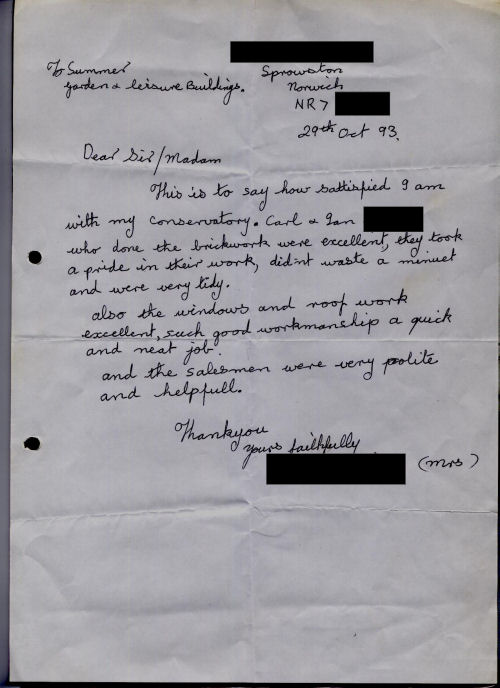 To Summer
Garden & Leisure Buildings.
Sprowston
Norwich
NR7
29th Oct 93.
Dear Sir/Madam
This is to say how sattisfied I am
with my conservatory. Carl & Ian
who done the brickwork were excellent, they took
a pride in their work, did'nt waste a minuet
and were very tidy.
also the windows and roof work
excellent, such good workmanship a quick
and neat job.
and the salesmen were very polite
and helpfull.
Thankyou
yours faithfully
(Mrs)